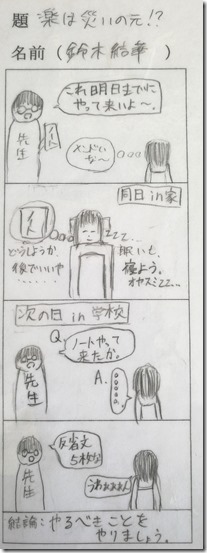 題 楽は災いの元!?
名前(鈴木結華)
これ明日までに
やって来いよ～。
先生
ノート
めんどい
な～
同日in家
ノート
ZZZ…
どうしようか、
後でいいや
……
眠いし
寝よう。
オヤスミZZ…
次の日in学校
Q
ノートやって
来たか。
先生
A.
反省文
5枚な
先生
うわぉぉぉん
結論:やるべきことを
やりましょう。